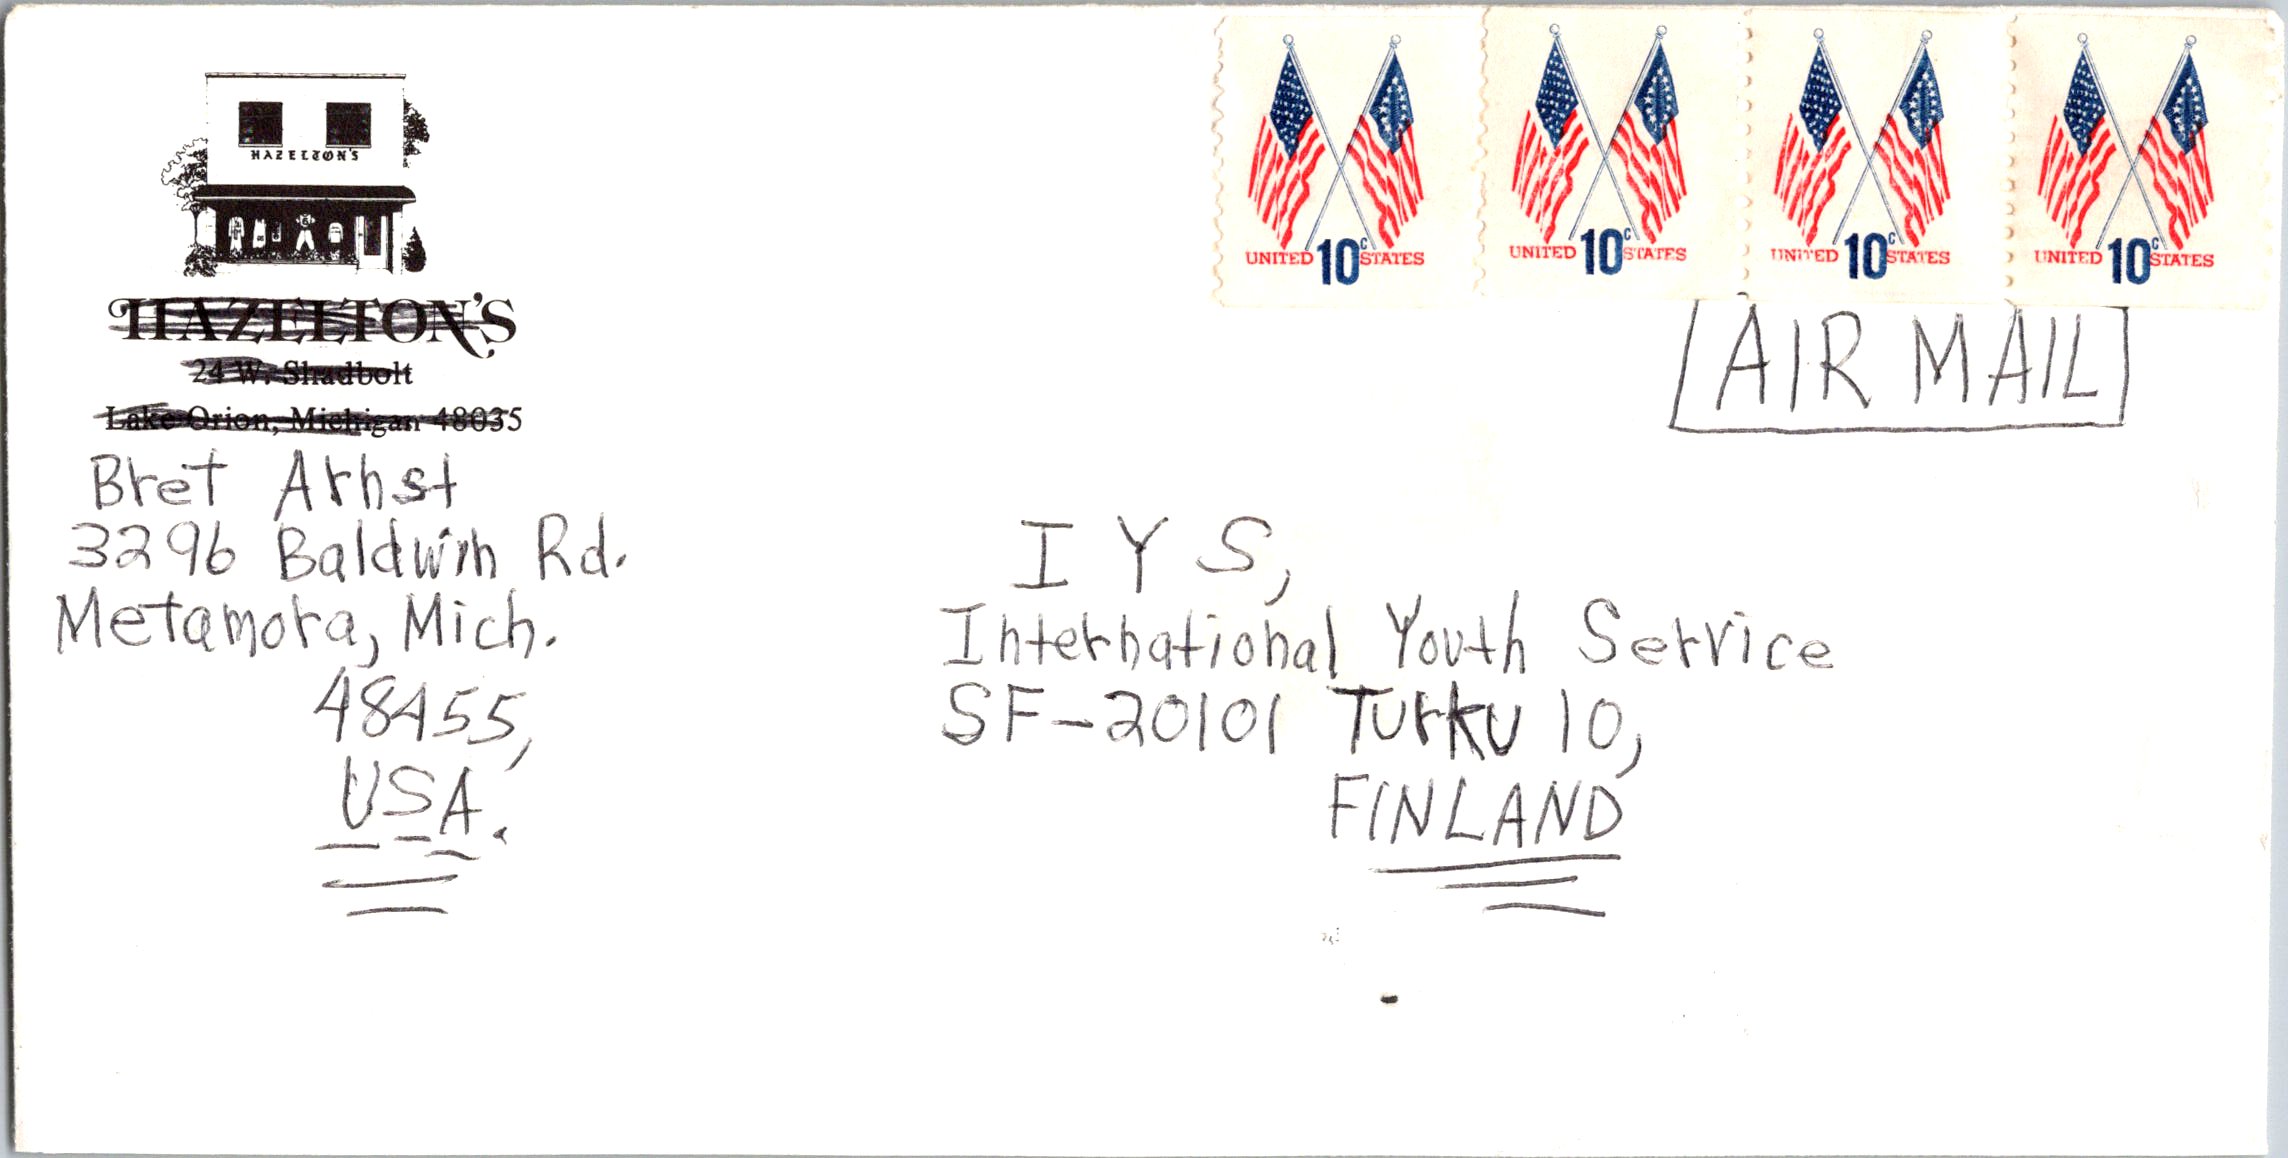 HAZELTON'S
HAZELTON'S
24 W. Shadbolt
Lake Orion, Michigan 48035
Bret Arnst
3296 Baldwin Rd.
Metamora, Mich.
48455,
USA.
UNITED 10c STATES
UNITED 10c STATES
UNITED 10c STATES
UNITED 10c STATES
AIR MAIL
I Y S,
International Youth Service
SF-20101 Turku 10,
FINLAND